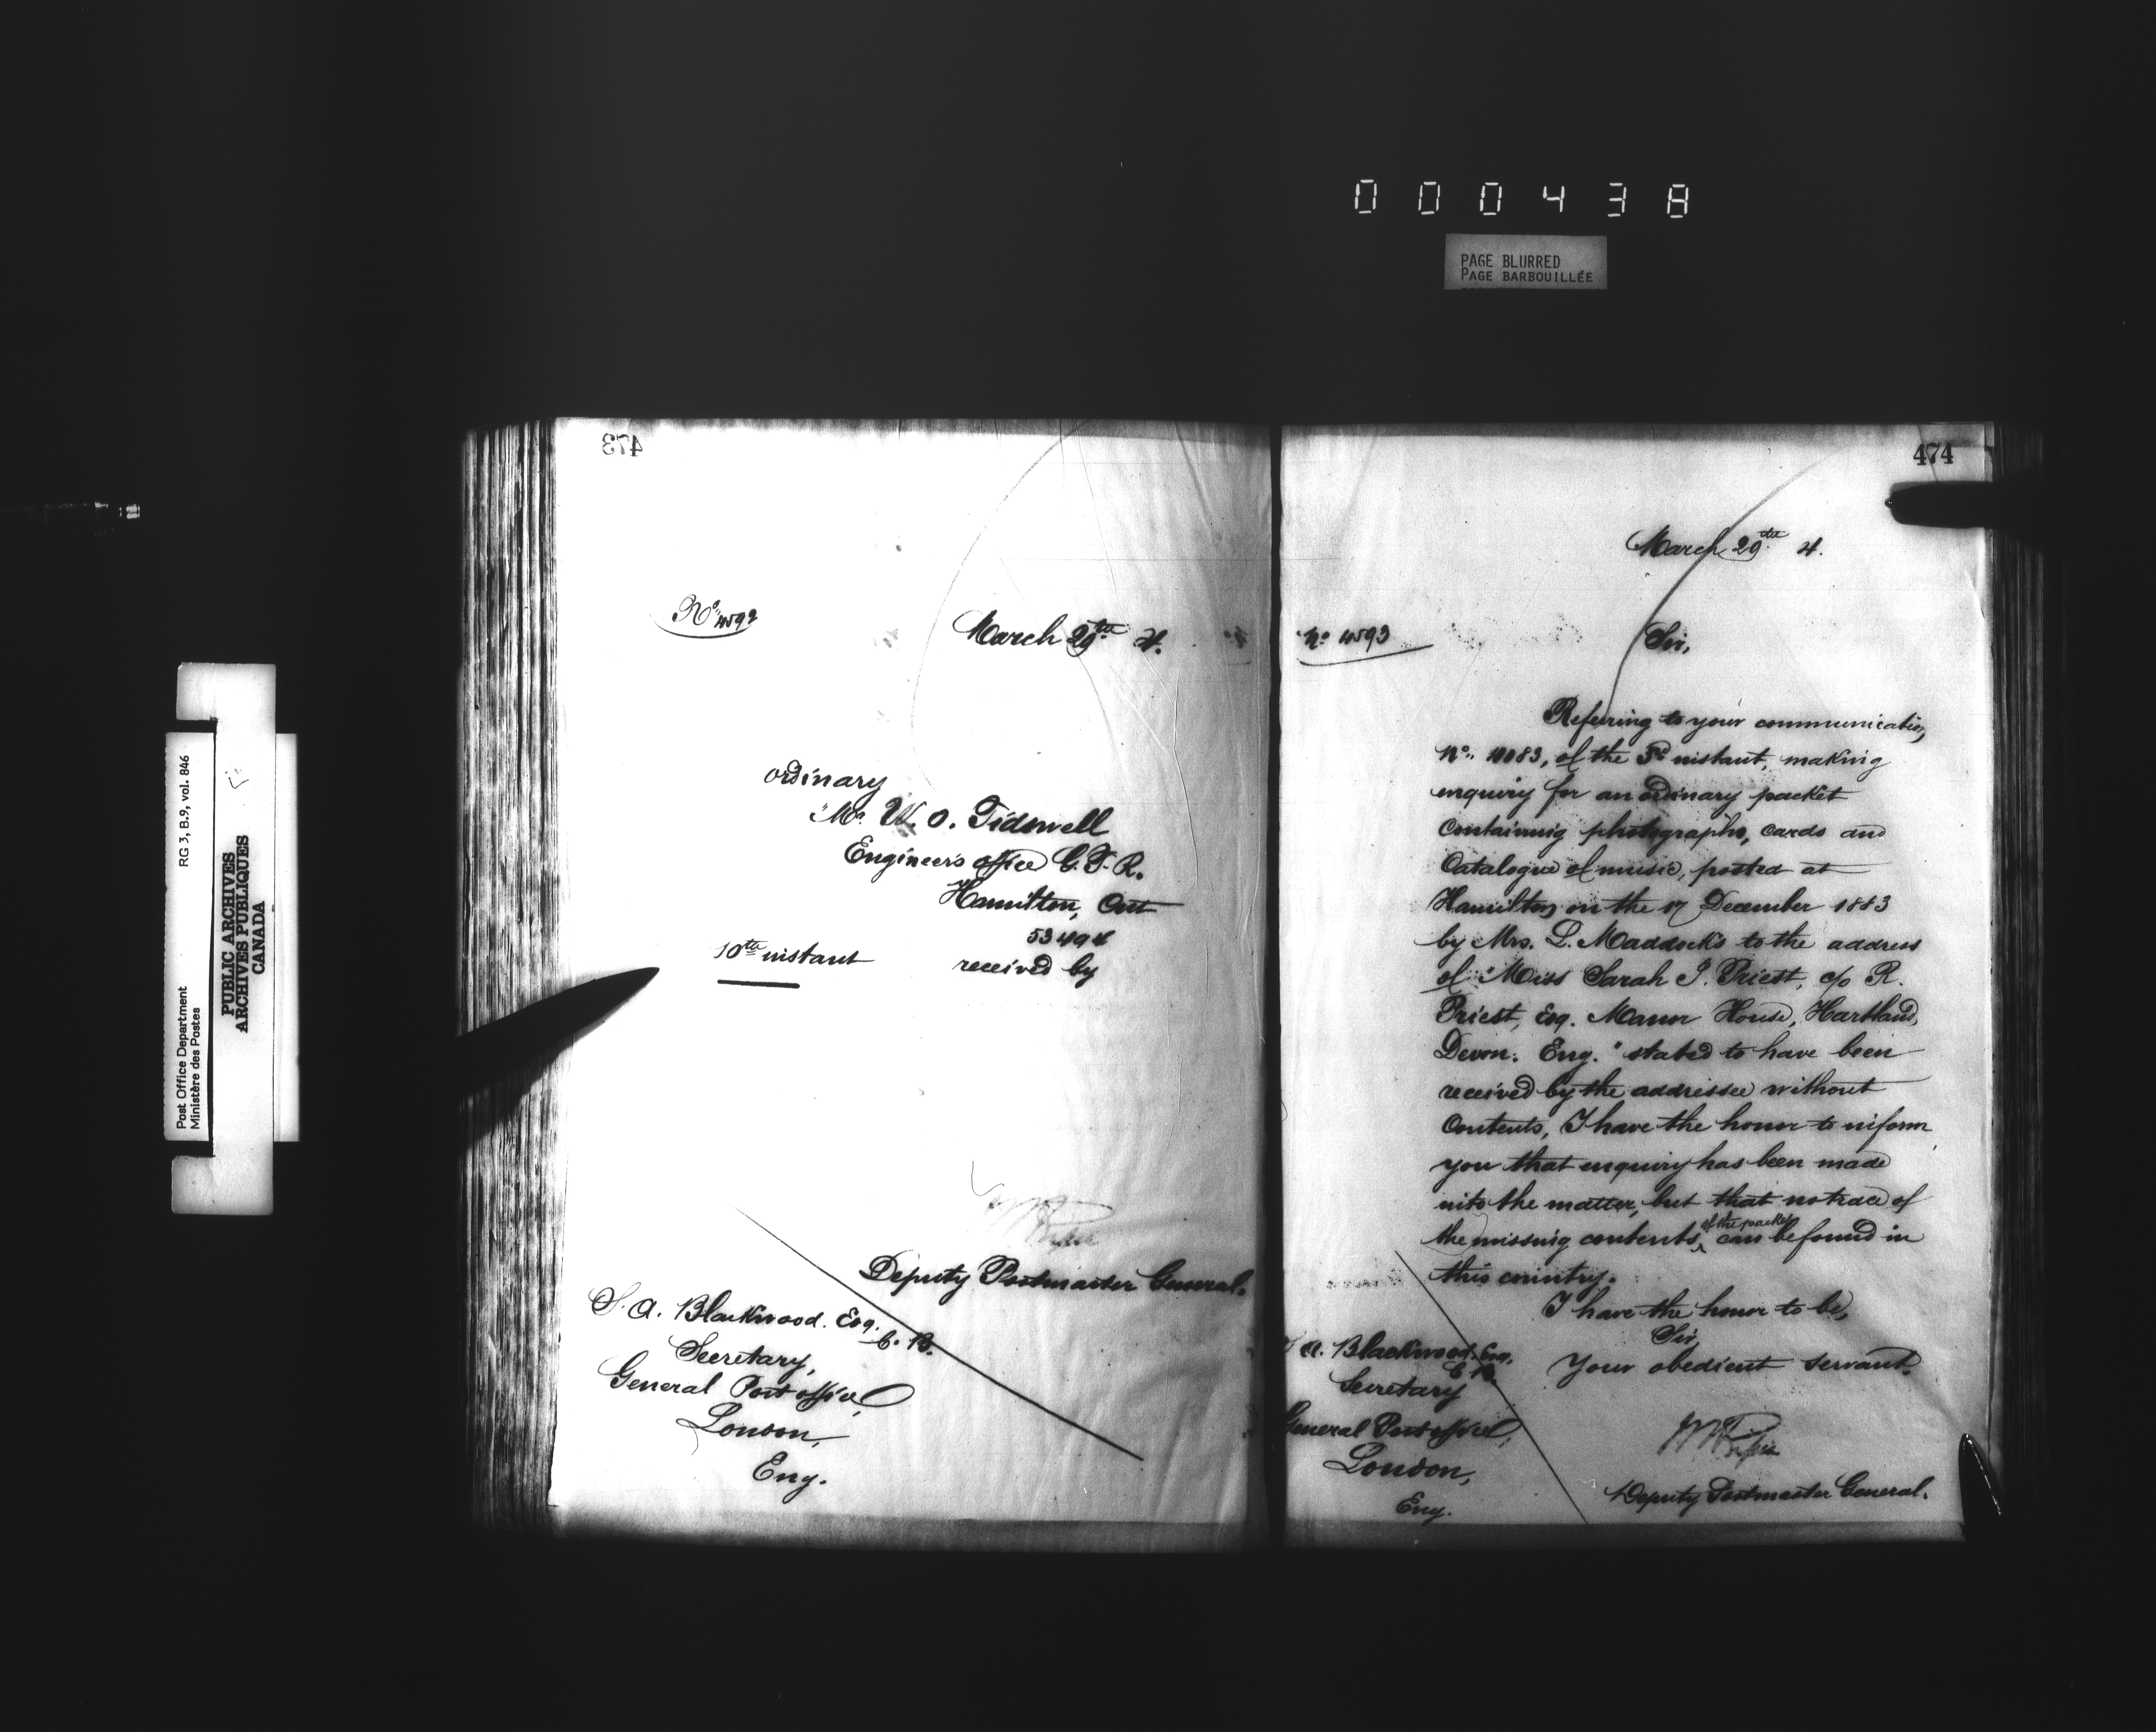 000438
PAGE BLURRED
PAGE BARBOUILLÉE
Post Office Department
Ministère des Postes
RG 3, B.9, vol. 846
PUBLIC ARCHIVES
ARCHIVES PUBLIQUES
CANADA
473
No. 4592
March 29th 4.
ordinary
"Mr. W. O. Tidswell
Engineers office G. T. R.
Hamilton, Ont
53494
10th instant received by
Deputy Postmaster General.
S. A. Blackwood. Esq.
C. B.
Secretary,
General Post office,
London,
Eng.
474
March 29th 4.
No. 4593
Sir,
Referring to your communication,
No. 10083, of the 3d instant, making
enquiry for an ordinary packet
containing photographs, cards and
Catalogue of music, posted at
Hamilton on the 17 December 1883
by Mrs. L. Maddocks to the address
of "Miss Sarah J. Priest, c/o R.
Priest, Esq. Manor House, Hartland,
Devon. Eng." stated to have been
received by the addressee without
contents, I have the honor to inform
you that enquiry has been made
into the matter, but that no trace of
the missing contents of the packet can be found in
this country.
I have the honor to be,
Sir,
Your obedient servant.
A. Blackwood. Esq.
C B.
Secretary
General Post office,
London,
Eng.
Deputy Postmaster General.